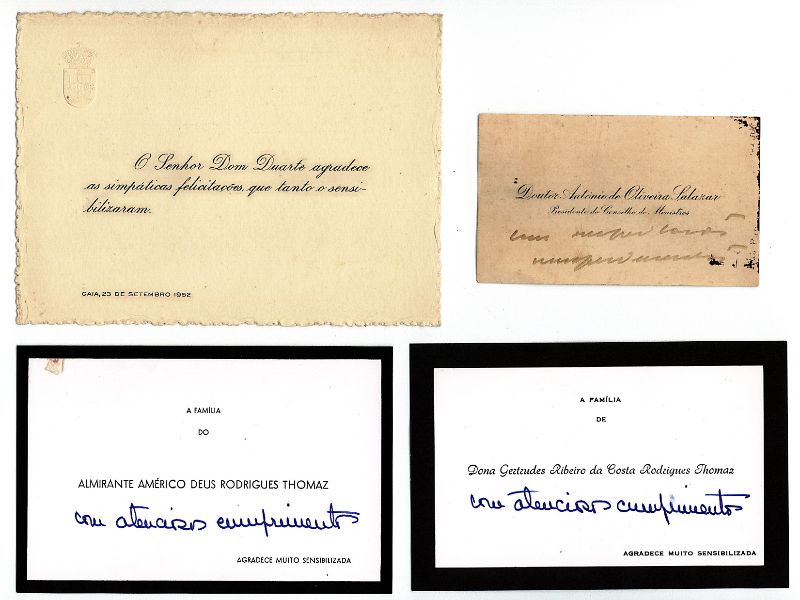 O Senhor Dom Duarte agradece
as simpáticas felicitações que tanto o sensi-
bilizaram.
GAIA, 23 DE SETEMBRO 1952
Doutor António de Oliveira Salazar
Presidente do Conselho de Ministros
com
A FAMÍLIA
DO
ALMIRANTE AMÉRICO DEUS RODRIGUES THOMAZ
com atenciosos cumprimentos
AGRADECE MUITO SENSIBILIZADA
A FAMÍLIA
DE
Dona Gertrudes Ribeiro da Costa Rodrigues Thomaz
com atenciosos cumprimentos
AGRADECE MUITO SENSIBILIZADA